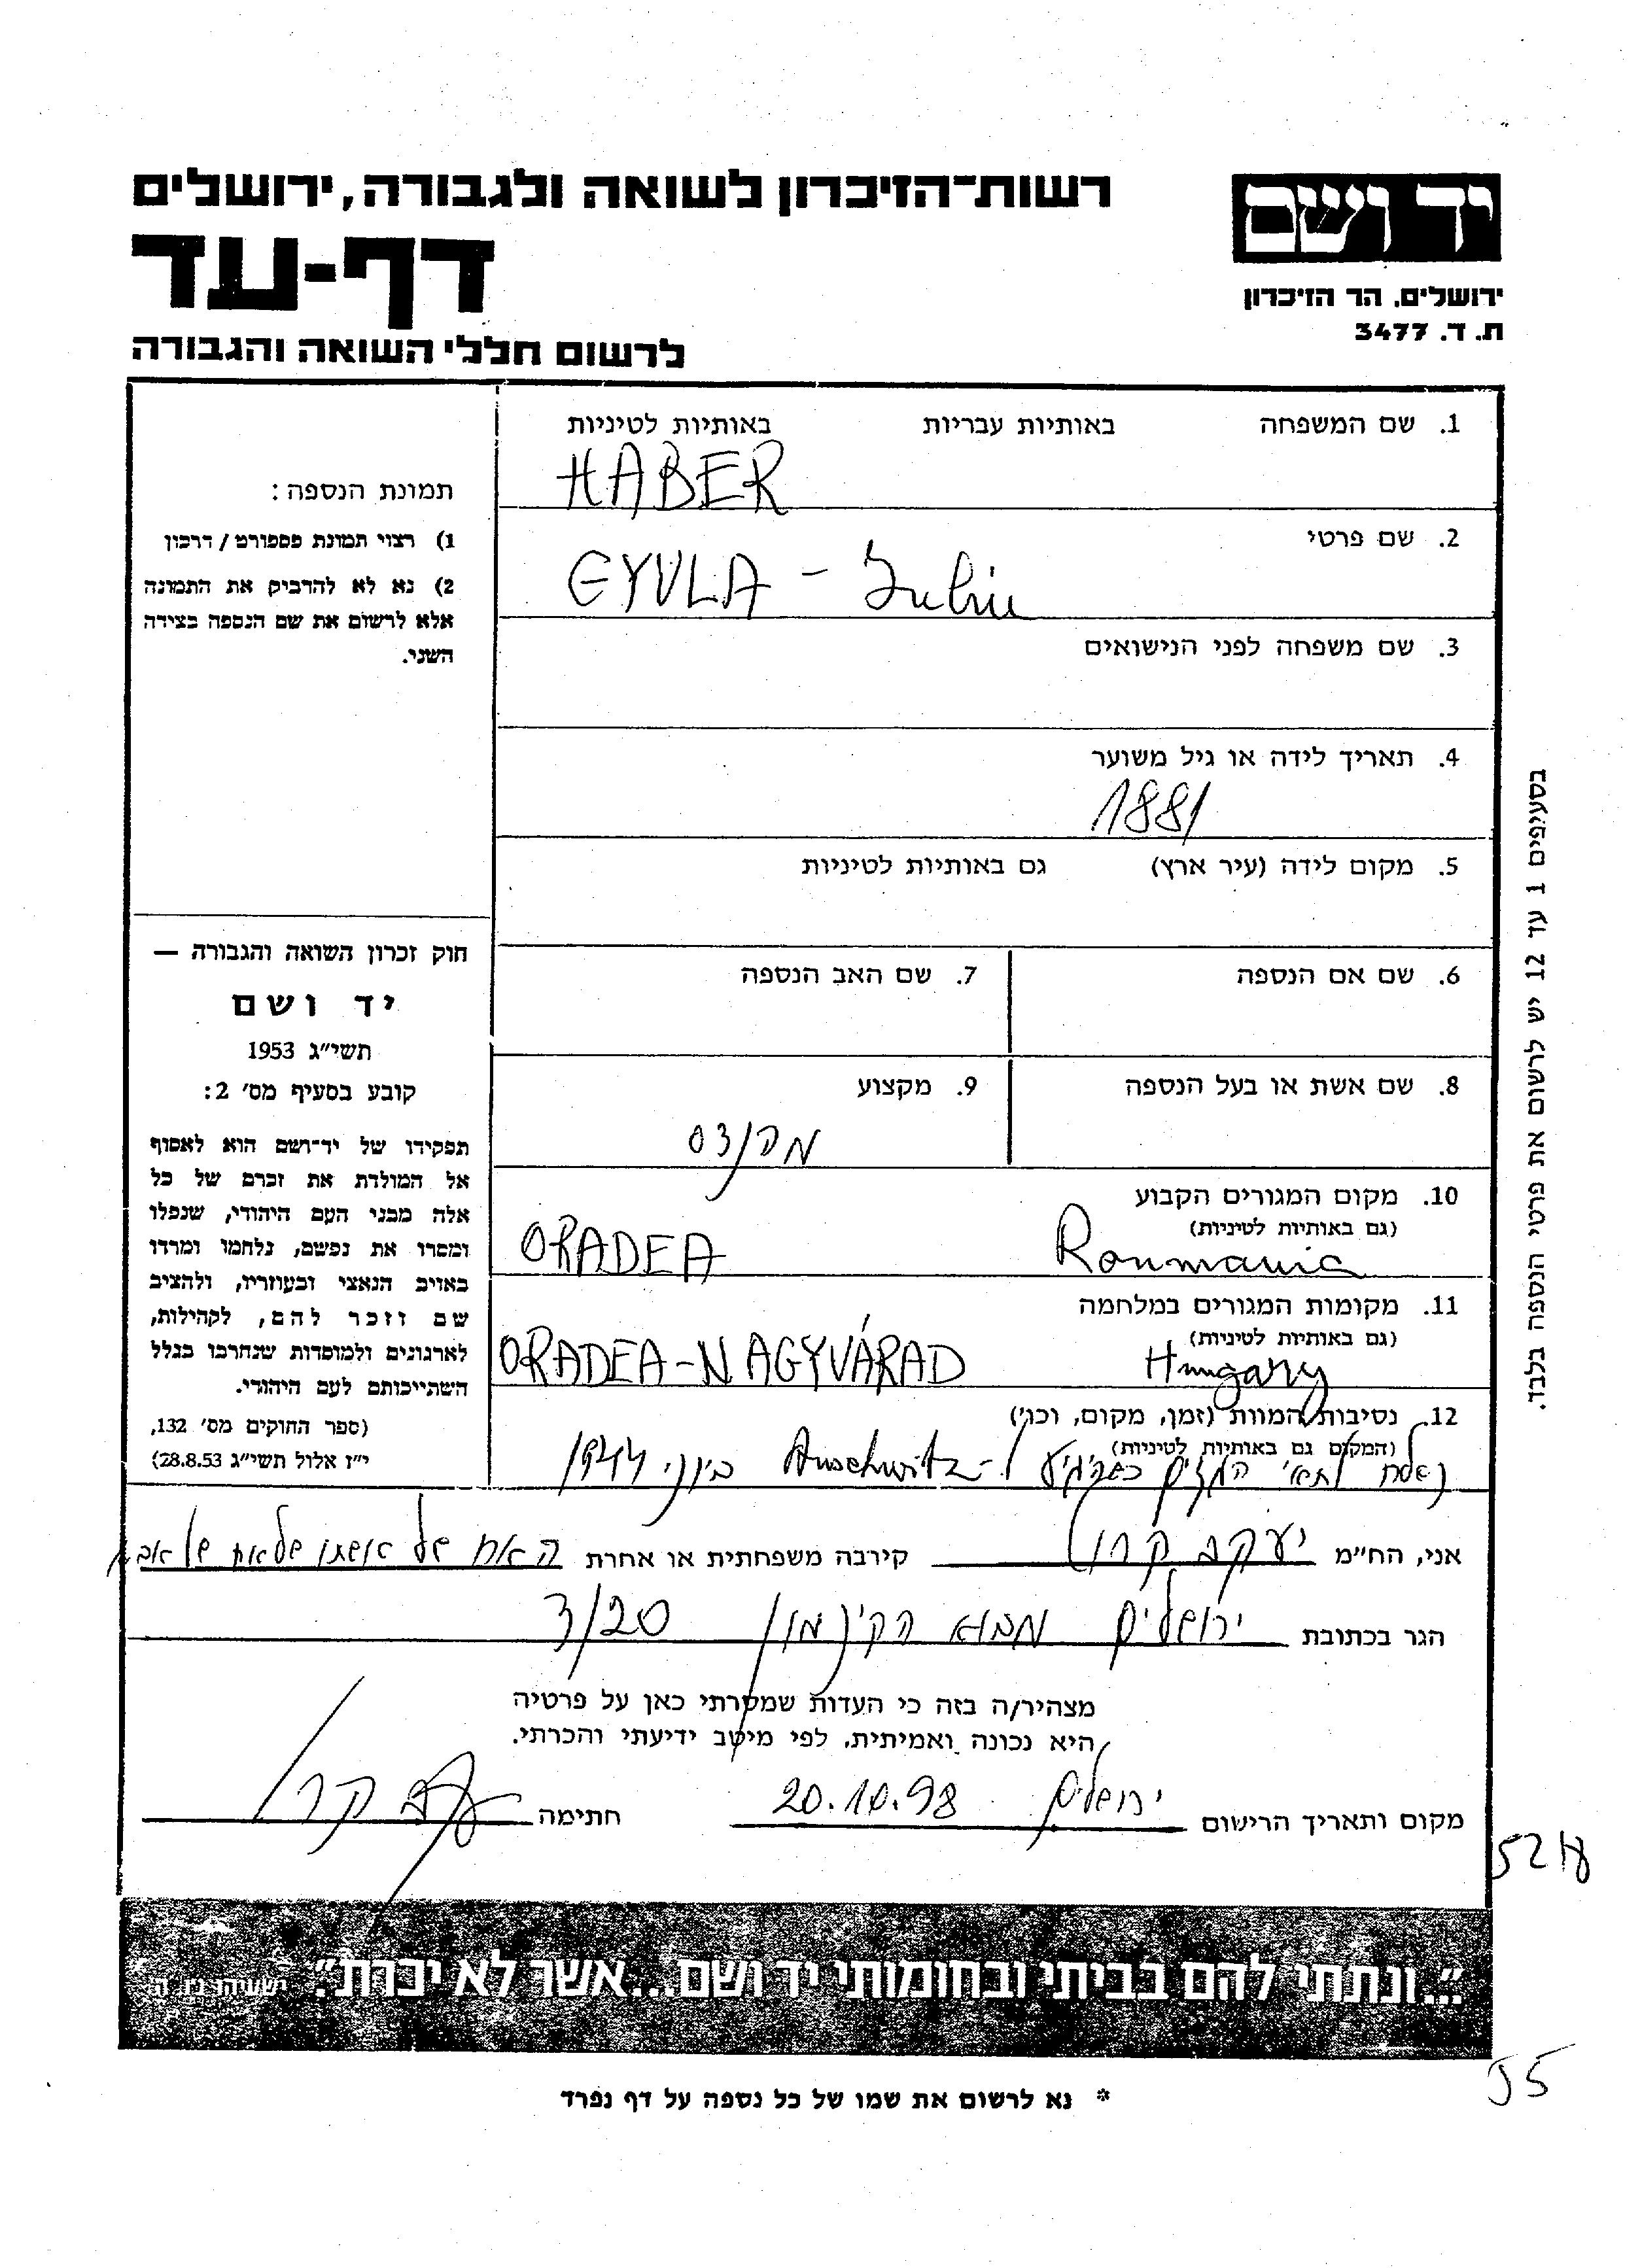 יד ושם
ירושלים. הר הזיכרון
ת. ד. 3477
רשות-הזיכרון לשואה ולגבורה, ירושלים
דף-עד
לרשום חללי השואה והגבורה
1. שם המשפחה באותיות עבריות באותיות לטיניות
HABER
2. שם פרטי
3. שם משפחה לפני הנישואים
4. תאריך לידה או גיל משוער
1881
5. מקום לידה (עיר ארץ) גם באותיות לטיניות
6. שם אם הנספה 7. שם האב הנספה
8. שם אשת או בעל הנספה 9. מקצוע
מהנדס
10. מקום המגורים הקבוע
(גם באותיות לטיניות)
Roumania ORADEA
11. מקומות המגורים במלחמה
(גם באותיות לטיניות)
Hungary ORADEA-NAGYVÁRAD
12. נסיבות המוות (זמן, מקום, וכו')
(המקום גם באותיות לטיניות)
נשלח לתאי הגזים כשהגיע ל-Auschwitz ביוני 1944
תמונת הנספה:
1) רצוי תמונת פספורט / דרכון
2) נא לא להדביק את התמונה
אלא לרשום את שם הנספה בצידה
השני.
חוק זכרון השואה והגבורה —
יד ושם
תשי"ג 1953
קובע בסעיף מס' 2:
תפקידו של יד-ושם הוא לאסוף
אל המולדת את זכרם של כל
אלה מבני העם היהודי, שנפלו
ומסרו את נפשם, נלחמו ומרדו
באויב הנאצי ובעוזריו, ולהציב
שם וזכר להם, לקהילות,
לארגונים ולמוסדות שנחרבו בגלל
השתייכותם לעם היהודי.
(ספר החוקים מס' 132,
י"ז אלול תשי"ג 28.8.53)
בסעיפים 1 עד 12 יש לרשום את פרטי הנספה בלבד.
אני, הח"מ יעקב קרול קירבה משפחתית או אחרת האח של אשתו של אח של אבי
הגר בכתובת ירושלים מבוא הקינמון 20/3
מצהיר/ה בזה כי העדות שמסרתי כאן על פרטיה
היא נכונה ואמיתית, לפי מיטב ידיעתי והכרתי.
מקום ותאריך הרישום ירושלים 20.10.98 חתימה
"...ונתתי להם בביתי ובחומותי יד ושם...אשר לא יכרת". ישעיהו נ"ו, ה'
* נא לרשום את שמו של כל נספה על דף נפרד